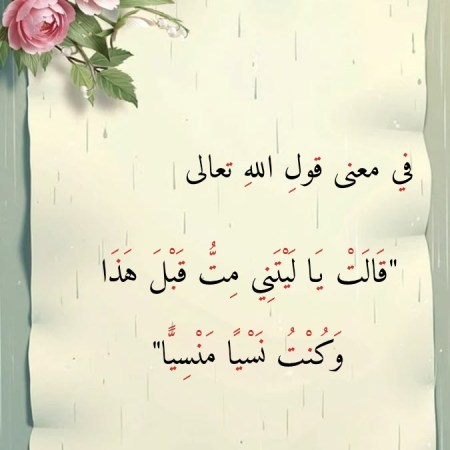 في معنى قولِ اللهِ تعالى
"قَالَتْ يَا لَيْتَنِي مِتُّ قَبْلَ هَذَا
وَكُنْتُ نَسْيًا مَنْسِيًّا"